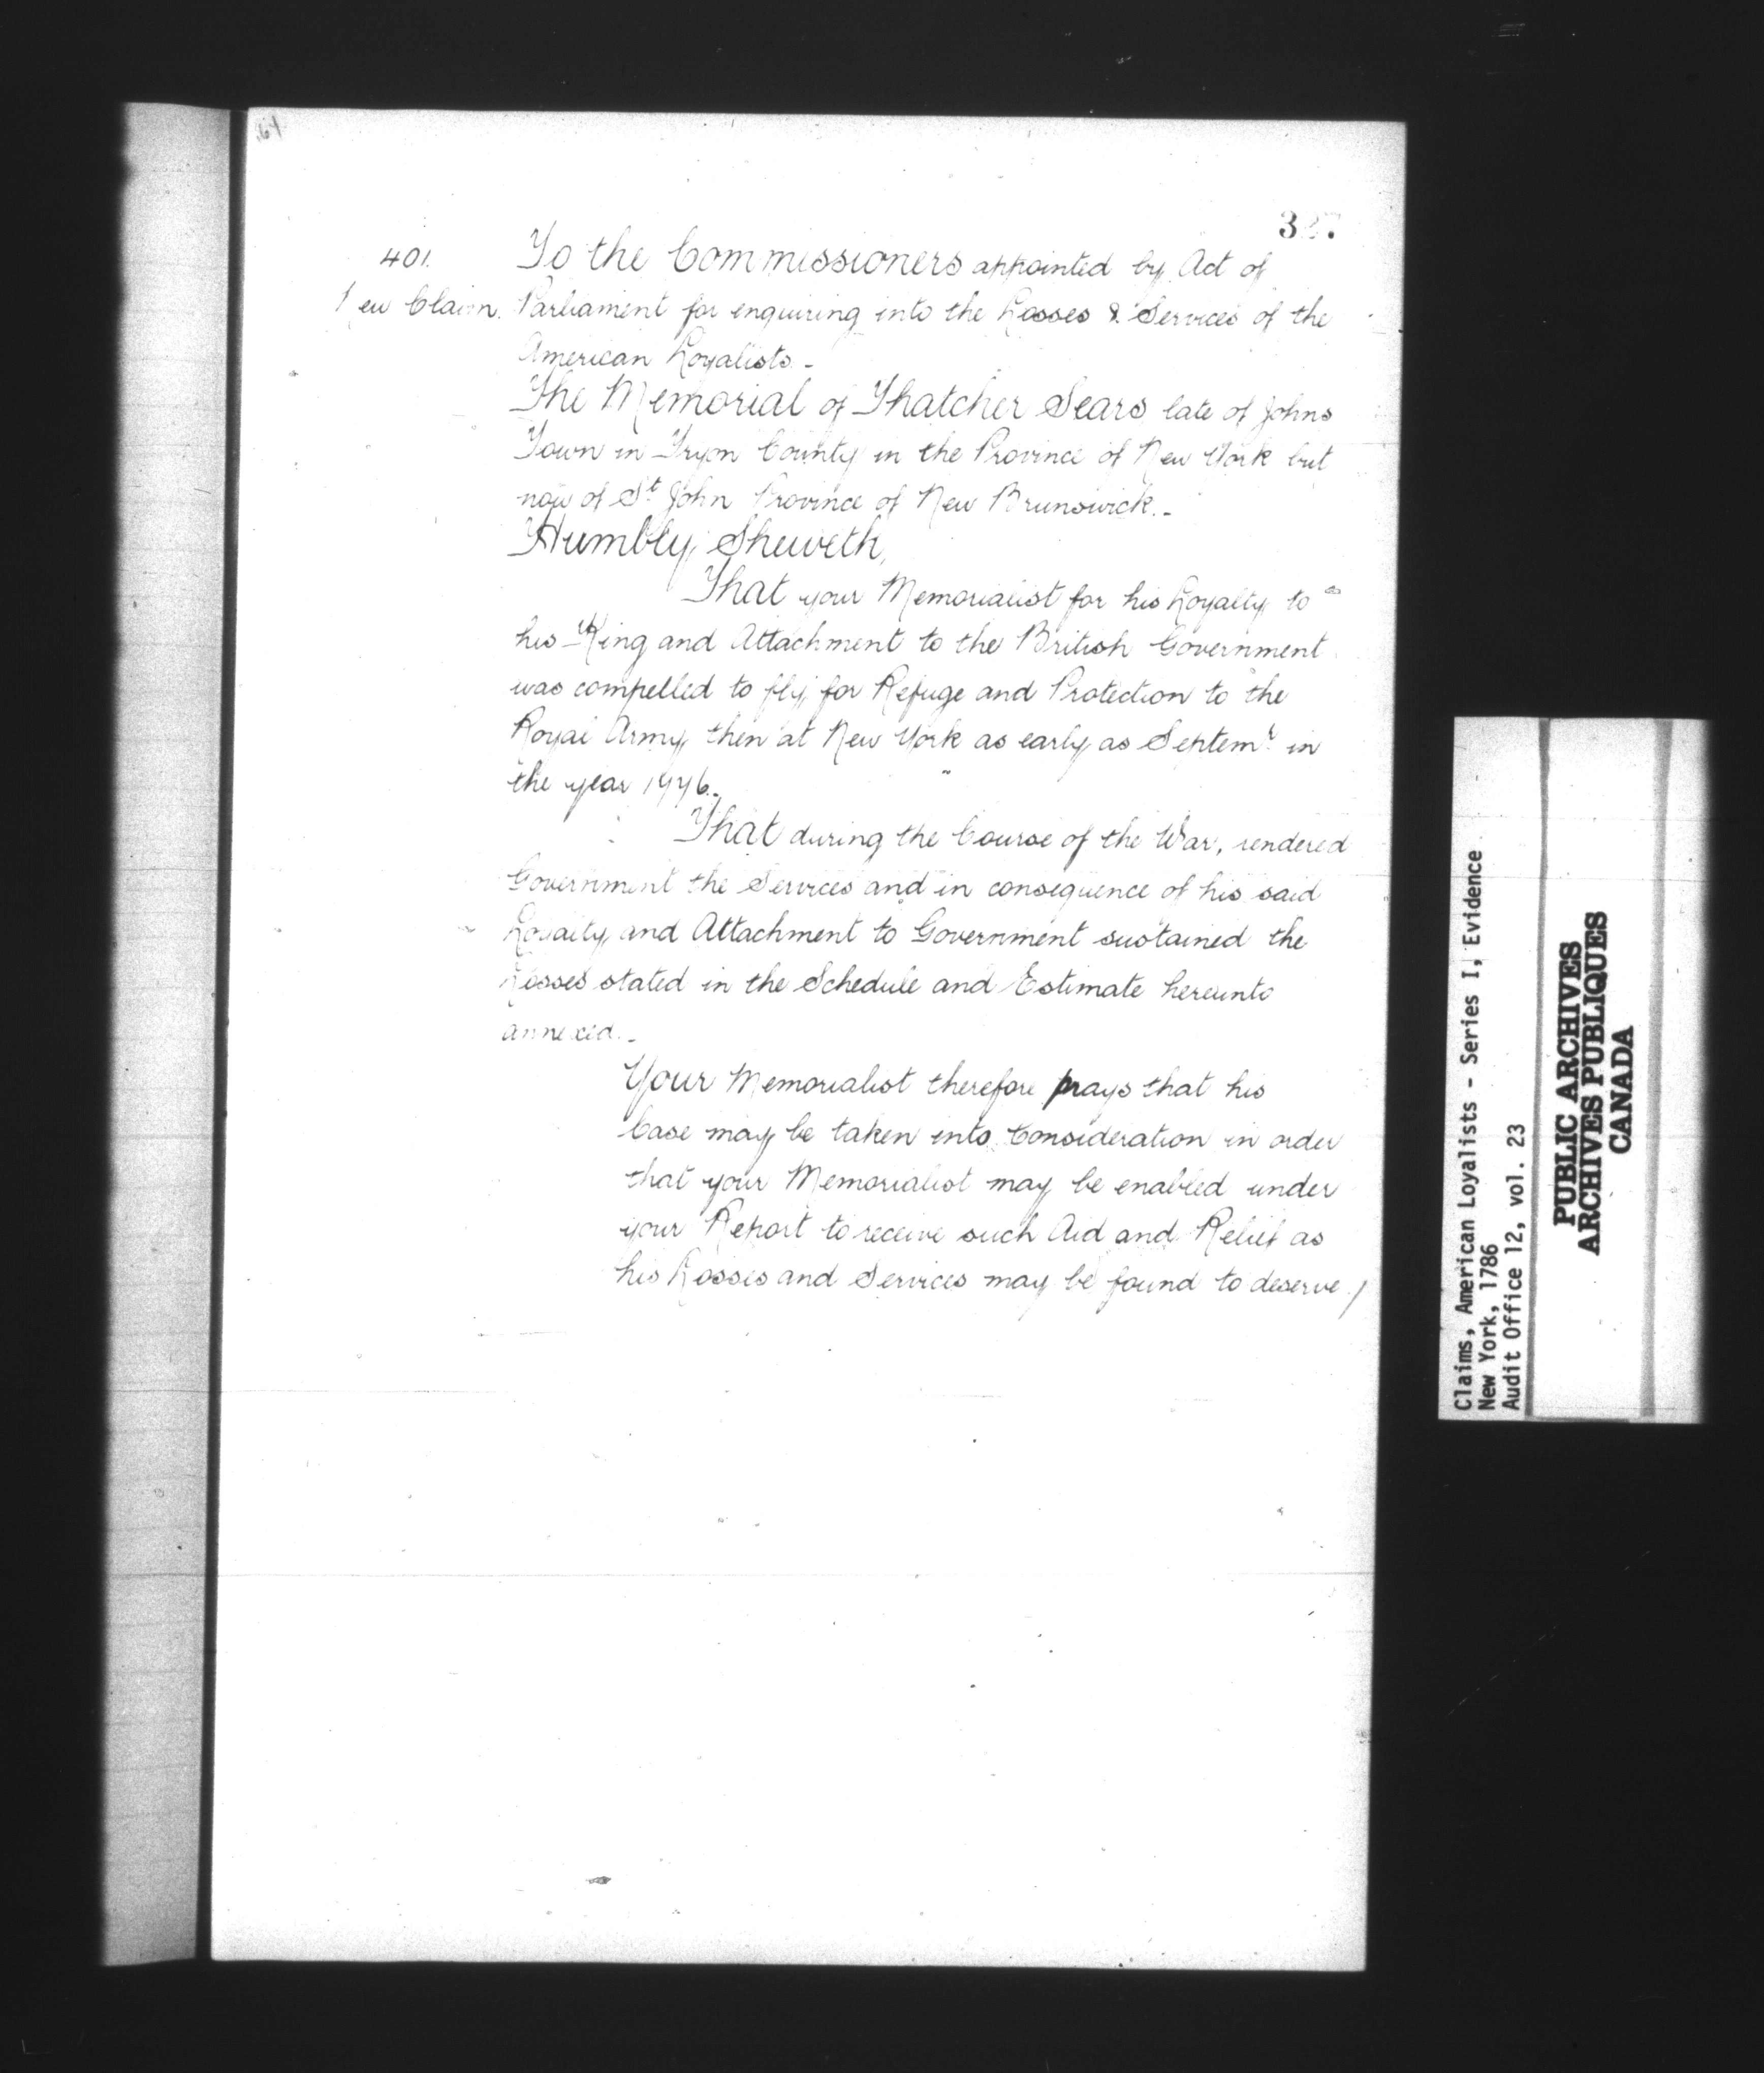 401.
To the Commissioners appointed by Act of
New Claim. Parliament for enquiring into the Losses & Services of the
American Loyalists.-
The Memorial of Thatcher Sears late of Johns
Town in Tryon County in the Province of New York but
now of St John Province of New Brunswick.-
Humbly Sheweth,
That your Memorialist for his Loyalty to
his King and Attachment to the British Government
was compelled to fly for Refuge and Protection to the
Royal Army then at New York as early as Septemr in
the year 1776.-
That during the Course of the War, rendered
Government the Services and in consequence of his said
Loyalty and Attachment to Government sustained the
Losses stated in the Schedule and Estimate hereunto
annexed.-
Your Memorialist therefore prays that his
Case may be taken into Consideration in order
that your Memorialist may be enabled under
your Report to receive such Aid and Relief as
his Losses and Services may be found to deserve /
Claims, American Loyalists - Series I, Evidence
New York, 1786
Audit Office 12, vol. 23
PUBLIC ARCHIVES
ARCHIVES PUBLIQUES
CANADA